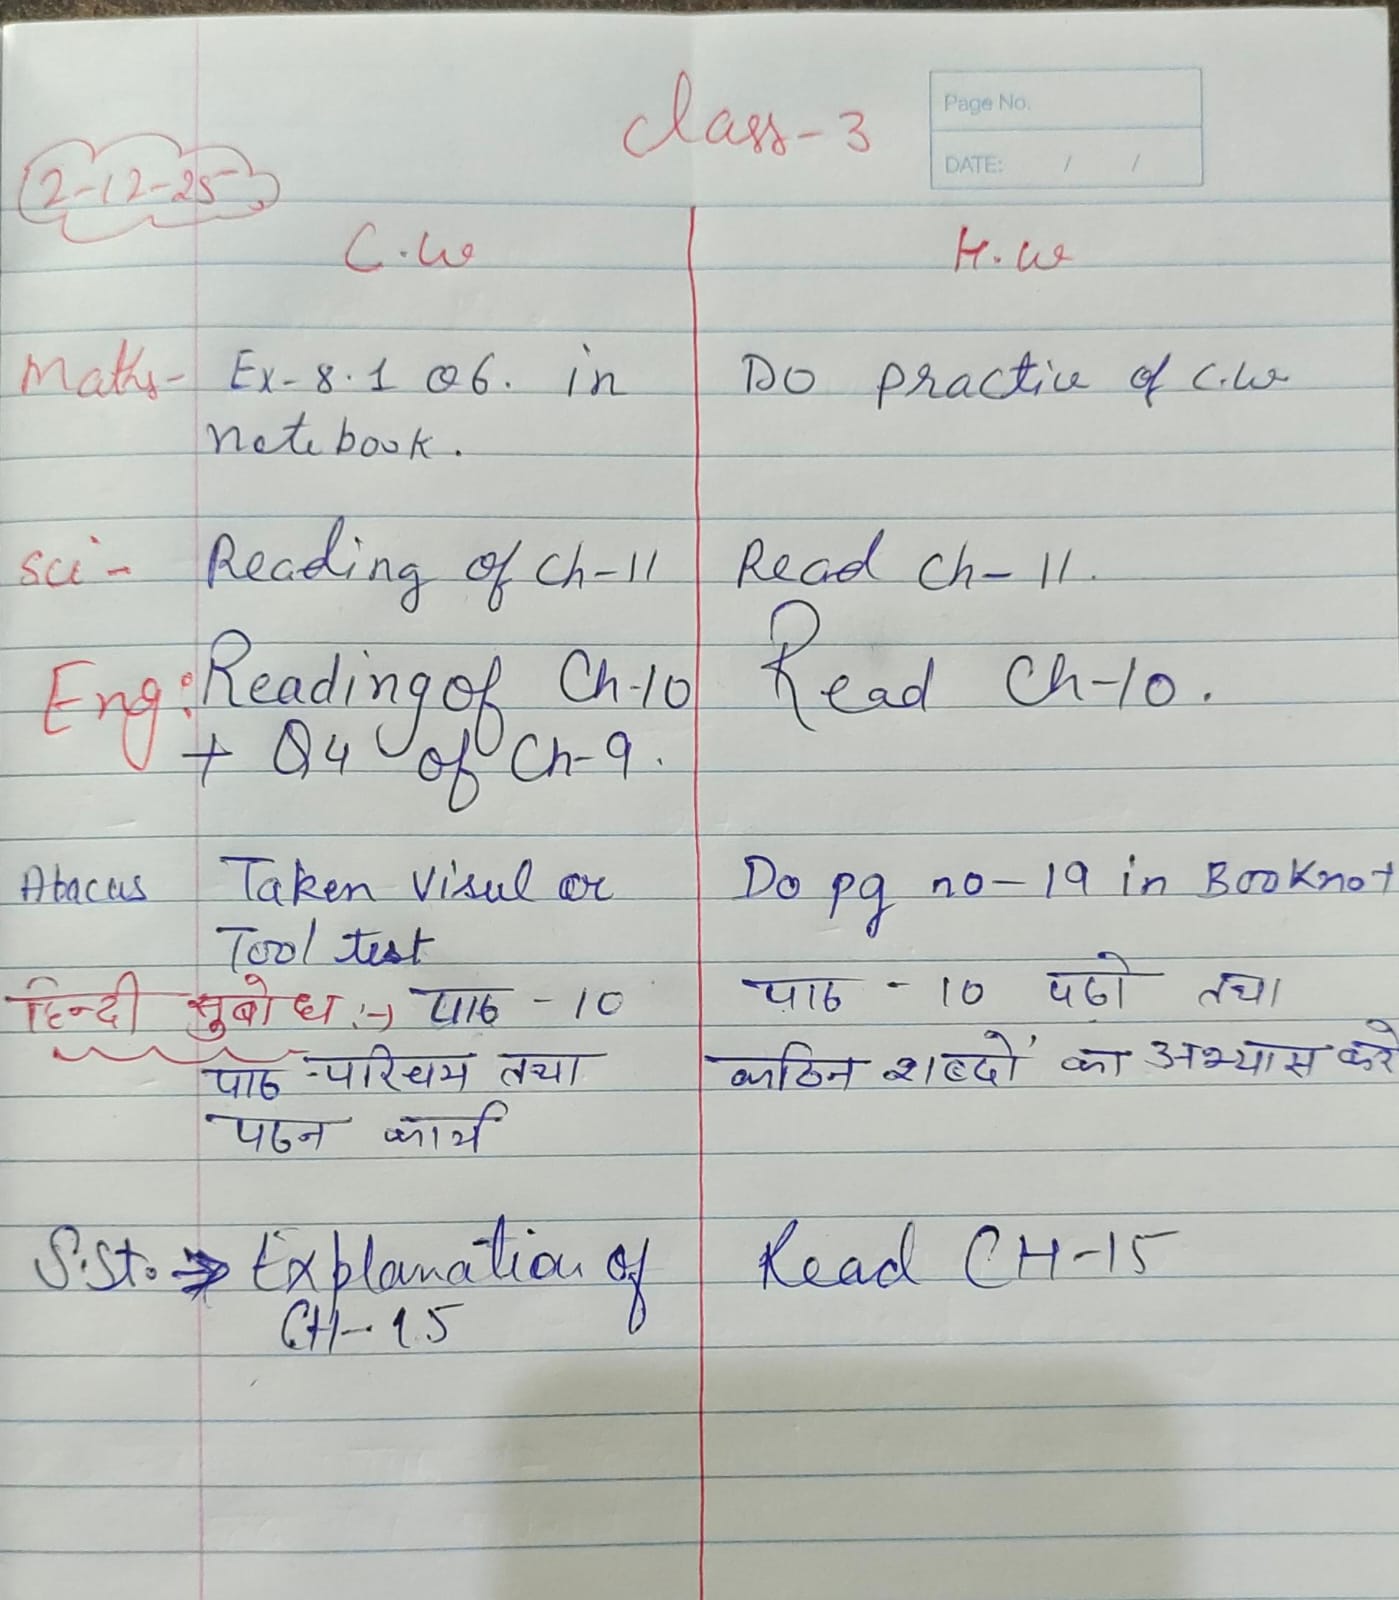 class-3
Page No.
DATE: / /
2-12-25
C.W
H.W
Maths- Ex-8.1 Q6. in
notebook.
Do practice of C.W
Sci- Reading of Ch-11
Read Ch-11.
Eng: Reading of Ch-10
+ Q4 of Ch-9.
Read Ch-10.
Abacus Taken Visul or
Tool test
Do pg no-19 in Booknot
हिन्दी सुबोध :-) पाठ - 10
पाठ -परिचय तथा
पठन कार्य
पाठ - 10 पढो तथा
कठिन शब्दों का अभ्यास करो
S.St. → Explanation of
CH-15
Read CH-15